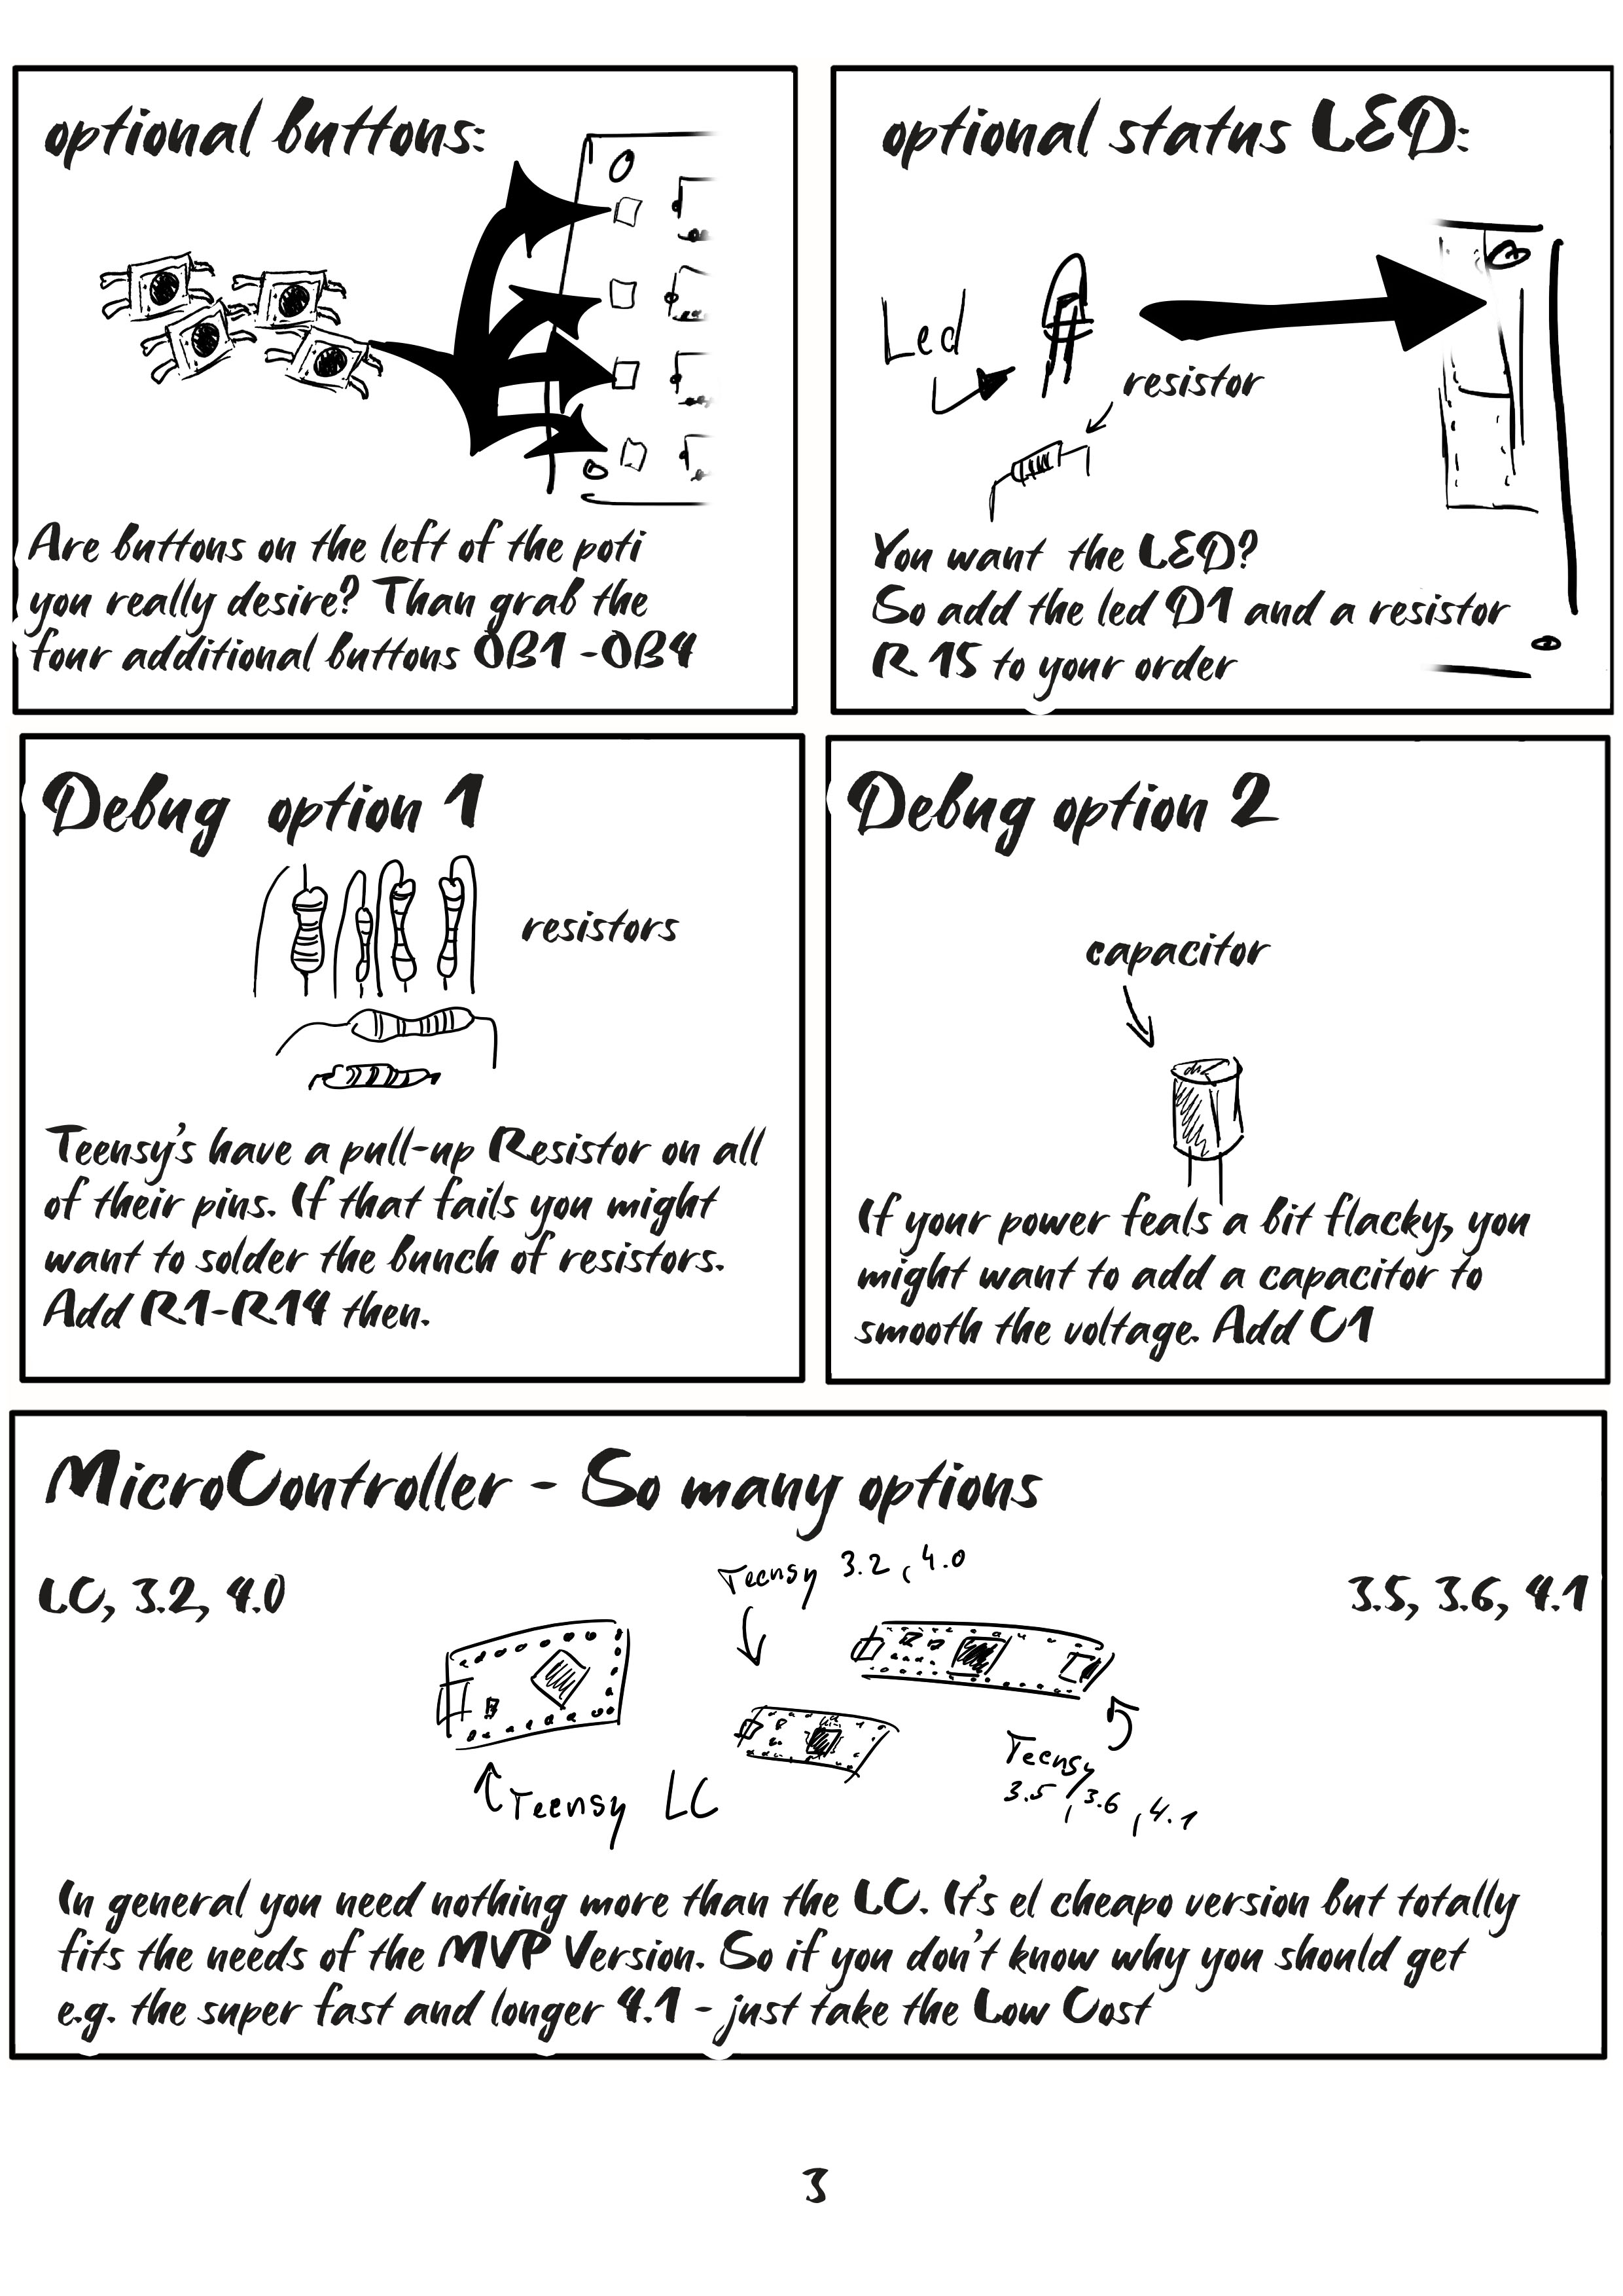 optional buttons:
Are buttons on the left of the poti
you really desire? Than grab the
four additional buttons OB1 - OB4
optional status LED:
Led
resistor
You want the LED?
So add the led D1 and a resistor
R 15 to your order
Debug option 1
resistors
Teensy's have a pull-up Resistor on all
of their pins. If that fails you might
want to solder the bunch of resistors.
Add R1-R14 then.
Debug option 2
capacitor
If your power feals a bit flacky, you
might want to add a capacitor to
smooth the voltage. Add C1
MicroController - So many options
LC, 3.2, 4.0
Teensy 3.2, 4.0
3.5, 3.6, 4.1
Teensy LC
Teensy
3.5, 3.6, 4.1
In general you need nothing more than the LC. It's el cheapo version but totally
fits the needs of the MVP Version. So if you don't know why you should get
e.g. the super fast and longer 4.1 - just take the Low Cost
3